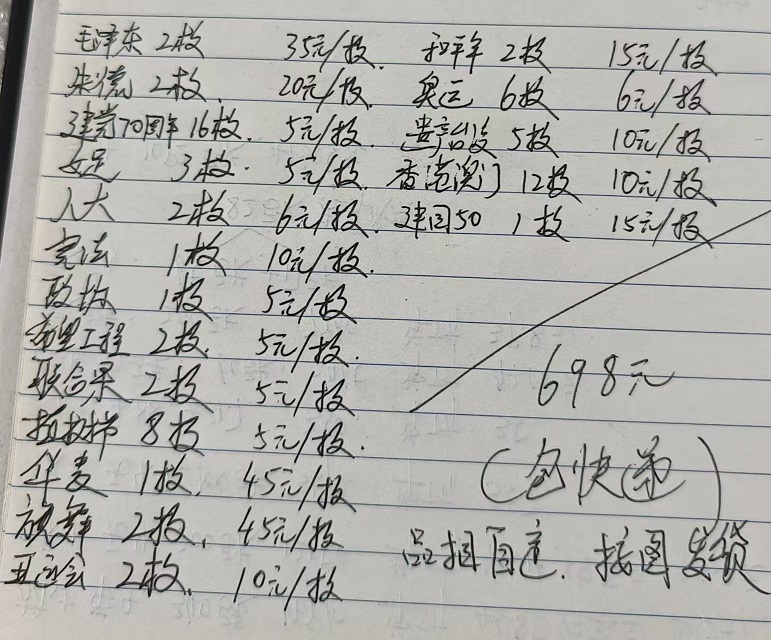 毛泽东 2枚 35元/枚. 和平年 2枚 15元/枚
朱德 2枚. 20元/枚. 奥运 6枚 6元/枚
建党70周年 16枚. 5元/枚. 5枚 10元/枚
女足 3枚. 5元/枚. 香港澳门 12枚 10元/枚
人大 2枚 6元/枚. 建国50 1枚 15元/枚
宪法 1枚 10元/枚.
政协 1枚 5元/枚
希望工程 2枚. 5元/枚.
联合果 2枚 5元/枚
植树 8枚 5元/枚.
华表 1枚. 45元/枚
2枚. 45元/枚
亚运会 2枚. 10元/枚
698元
(包快递)
品相自定. 按图发货